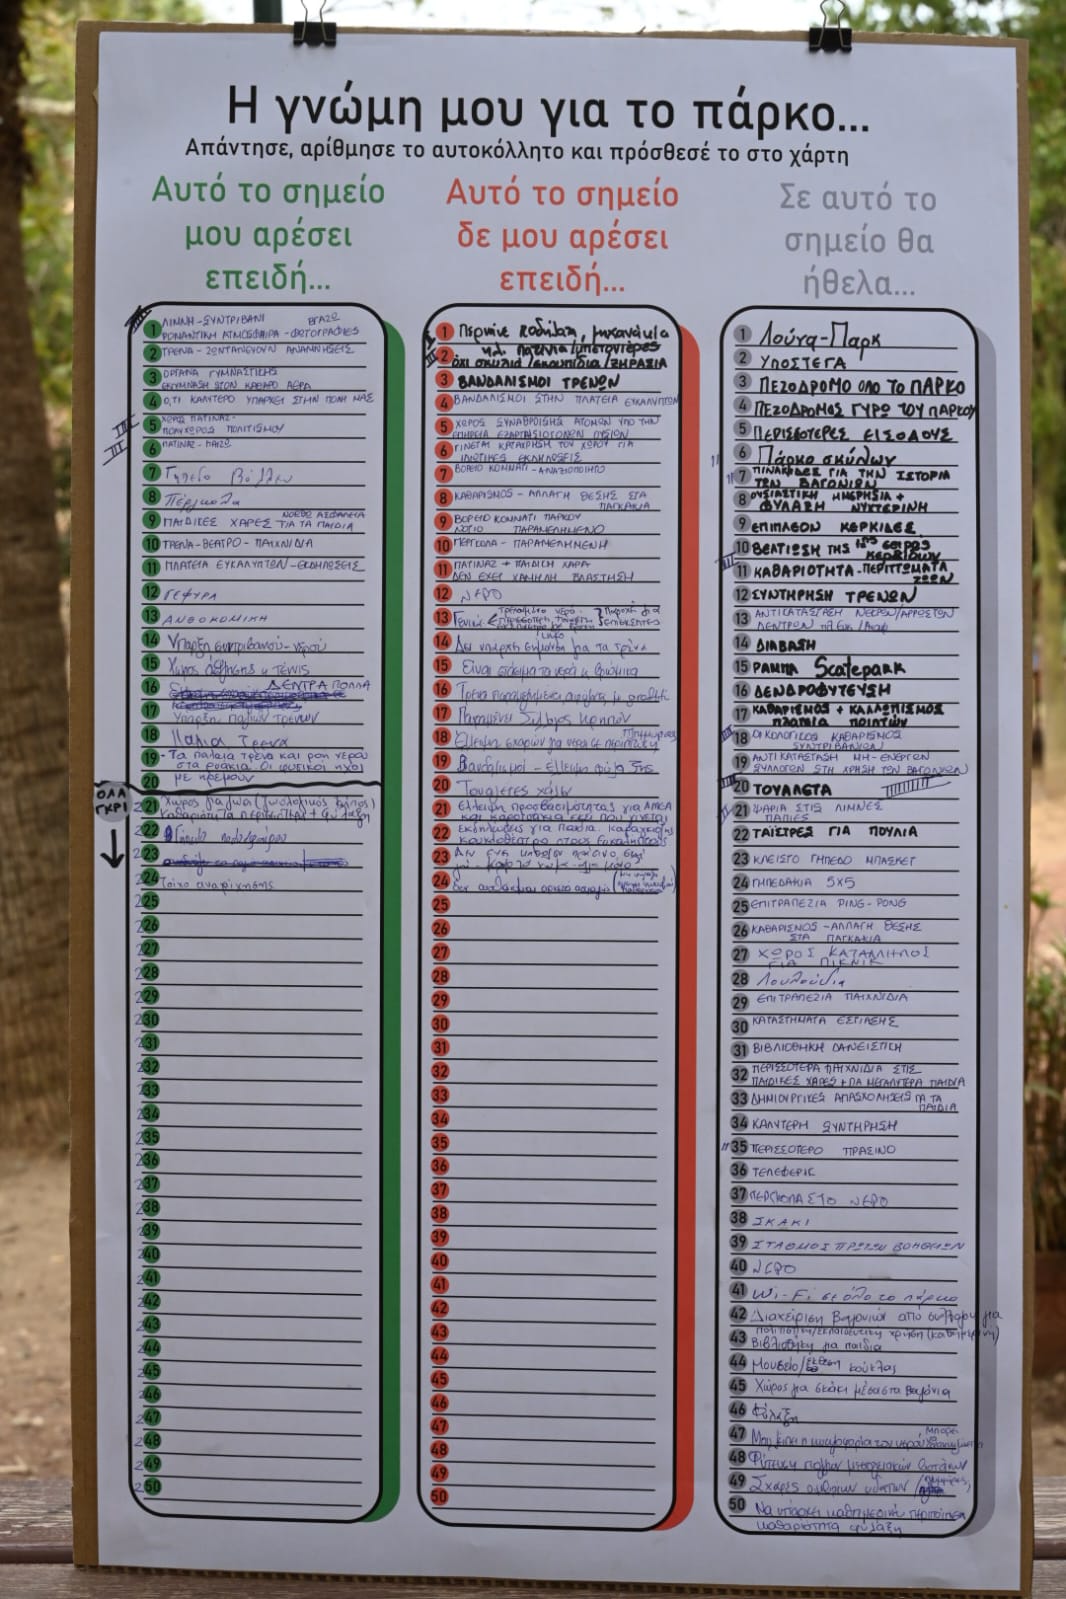 Η γνώμη μου για το πάρκο...
Απάντησε, αρίθμησε το αυτοκόλλητο και πρόσθεσέ το στο χάρτη
Αυτό το σημείο
μου αρέσει
επειδή...
1 ΛΙΜΝΗ - ΣΥΝΤΡΙΒΑΝΙ ΒΓΑΖΩ
ΡΟΜΑΝΤΙΚΗ ΑΤΜΟΣΦΑΙΡΑ - ΦΩΤΟΓΡΑΦΙΕΣ
2 ΤΡΕΝΑ - ΖΩΝΤΑΝΕΥΟΥΝ ΑΝΑΜΝΗΣΕΙΣ
3 ΟΡΓΑΝΑ ΓΥΜΝΑΣΤΙΚΗΣ
ΕΚΓΥΜΝΑΣΗ ΣΤΟΝ ΚΑΘΑΡΟ ΑΕΡΑ
4 Ο,ΤΙ ΚΑΛΥΤΕΡΟ ΥΠΑΡΧΕΙ ΣΤΗΝ ΠΟΛΗ ΜΑΣ
5 ΧΩΡΟΣ ΠΑΤΙΝΑΖ -
ΠΟΛΥΧΩΡΟΣ ΠΟΛΙΤΙΣΜΟΥ
6 ΠΑΤΙΝΑΖ - ΠΑΙΖΩ
7 Γήπεδο Βόλλεϋ
8 Πέργκολα
9 ΠΑΙΔΙΚΕΣ ΧΑΡΕΣ ΝΟΙΩΘΩ ΑΣΦΑΛΕΙΑ
ΓΙΑ ΤΑ ΠΑΙΔΙΑ
10 ΤΡΕΝΑ - ΘΕΑΤΡΟ - ΠΑΙΧΝΙΔΙΑ
11 ΠΛΑΤΕΙΑ ΕΥΚΑΛΥΠΤΩΝ - ΕΚΔΗΛΩΣΕΙΣ
12 ΓΕΦΥΡΑ
13 ΑΝΘΟΚΟΜΙΚΗ
14 Ύπαρξη συντριβανιού - νερού
15 Χώρος άθλησης π ΤΕΝΝΙΣ
16 ΔΕΝΤΡΑ ΠΟΛΛΑ
17 Υπαρξη παλιών τρένων
18 Παλιά Τρένα
19 - Τα παλαιά τρένα και ροη νερού
στα ρυάκια. Οι φυσικοί ήχοι
20 με ηρεμούν
ΟΛΑ
ΓΚΡΙ
21 Χώρος για ζωα (ζωολογικός κήπος)
καθαριότητα περισσότερη + φύλαξη
22 Γήπεδο ποδοσφαίρου
23
24 Τοίχο αναρρίχησης
25
26
27
28
29
30
31
32
33
34
35
36
37
38
39
40
41
42
43
44
45
46
47
48
49
50
Αυτό το σημείο
δε μου αρέσει
επειδή...
1 Περνανε ποδήλατα, μηχανάκια
2 κ.λ. πατίνια/μπετονιέρες
ΟΧΙ ΣΚΥΛΙΑ/ΣΚΟΥΠΙΔΙΑ/ΞΗΡΑΣΙΑ
3 ΒΑΝΔΑΛΙΣΜΟΙ ΤΡΕΝΩΝ
4 ΒΑΝΔΑΛΙΣΜΟΙ ΣΤΗΝ ΠΛΑΤΕΙΑ ΕΥΚΑΛΥΠΤΩΝ
5 ΧΩΡΟΣ ΣΥΝΑΘΡΟΙΣΗΣ ΑΤΟΜΩΝ ΥΠΟ ΤΗΝ
ΕΠΗΡΕΙΑ ΕΞΑΡΤΗΣΙΟΓΟΝΩΝ ΟΥΣΙΩΝ
6 ΓΙΝΕΤΑΙ ΚΑΤΑΧΡΗΣΗ ΤΟΥ ΧΩΡΟΥ ΓΙΑ
ΙΔΙΩΤΙΚΕΣ ΕΚΔΗΛΩΣΕΙΣ
7 ΒΟΡΕΙΟ ΚΟΜΜΑΤΙ - ΑΝΑΞΙΟΠΟΙΗΤΟ
8 ΚΑΘΑΡΙΣΜΟΣ - ΑΛΛΑΓΗ ΘΕΣΗΣ ΣΤΑ
ΠΑΓΚΑΚΙΑ
9 ΒΟΡΕΙΟ ΚΟΜΜΑΤΙ ΠΑΡΚΟΥ
ΝΟΤΙΟ ΠΑΡΑΜΕΛΗΜΕΝΟ
10 ΠΕΡΓΚΟΛΑ - ΠΑΡΑΜΕΛΗΜΕΝΗ
11 ΠΑΤΙΝΑΖ + ΠΑΙΔΙΚΗ ΧΑΡΑ
ΔΕΝ ΕΧΕΙ ΧΑΜΗΛΗ ΒΛΑΣΤΗΣΗ
12 ΝΕΡΟ
13 Γενικά
14 Δεν υπάρχει σήμανση για τα τρένα
15 Είναι στάσιμα τα νερά κ βρώμικα
16 Τρένα παραμελημένα, σκουριά κ graffiti
17 Παραμένει Σύλλογος Κρητών
18 Έλλειψη σχαρών για νερά σε περίπτωση πλημμύρας
19 Βανδαλισμοί - έλλειψη φύλαξης
20 Τουαλέτες χάλια
21 Έλλειψη προσβασιμότητας για ΑΜΕΑ
και καροτσάκια εκεί που γίνεται
22 εκδηλώσεις για παιδιά. Καραγκιόζης
κουκλοθέατρο στους Ευκαλύπτους
23 Δεν έχει
24
25
26
27
28
29
30
31
32
33
34
35
36
37
38
39
40
41
42
43
44
45
46
47
48
49
50
Σε αυτό το
σημείο θα
ήθελα...
1 Λούνα-Παρκ
2 ΥΠΟΣΤΕΓΑ
3 ΠΕΖΟΔΡΟΜΟ ΟΛΟ ΤΟ ΠΑΡΚΟ
4 ΠΕΖΟΔΡΟΜΟΣ ΓΥΡΩ ΤΟΥ ΠΑΡΚΟΥ
5 ΠΕΡΙΣΣΟΤΕΡΕΣ ΕΙΣΟΔΟΥΣ
6 Πάρκο σκύλων
7 ΠΙΝΑΚΙΔΕΣ ΓΙΑ ΤΗΝ ΙΣΤΟΡΙΑ
ΤΩΝ ΒΑΓΟΝΙΩΝ
8 ΟΥΣΙΑΣΤΙΚΗ ΗΜΕΡΗΣΙΑ +
ΦΥΛΑΞΗ ΝΥΧΤΕΡΙΝΗ
9 ΕΠΙΠΛΕΟΝ ΚΕΡΚΙΔΕΣ
10 ΒΕΛΤΙΩΣΗ ΤΗΣ 1ης ΣΕΙΡΑΣ
ΚΕΡΚΙΔΩΝ
11 ΚΑΘΑΡΙΟΤΗΤΑ - ΠΕΡΙΤΤΩΜΑΤΑ
ΖΩΩΝ
12 ΣΥΝΤΗΡΗΣΗ ΤΡΕΝΩΝ
13 ΑΝΤΙΚΑΤΑΣΤΑΣΗ ΝΕΚΡΩΝ/ΑΡΡΩΣΤΩΝ
ΔΕΝΤΡΩΝ
14 ΔΙΑΒΑΣΗ
15 ΡΑΜΠΑ Scatepark
16 ΔΕΝΔΡΟΦΥΤΕΥΣΗ
17 ΚΑΘΑΡΙΣΜΟΣ + ΚΑΛΛΩΠΙΣΜΟΣ
ΠΛΑΤΕΙΑ ΠΟΙΗΤΩΝ
18 ΟΙΚΟΛΟΓΙΚΟΣ ΚΑΘΑΡΙΣΜΟΣ
ΣΥΝΤΡΙΒΑΝΙΩΝ
19 ΑΝΤΙΚΑΤΑΣΤΑΣΗ ΜΗ-ΕΝΕΡΓΩΝ
ΣΥΛΛΟΓΩΝ ΣΤΗ ΧΡΗΣΗ ΤΩΝ ΒΑΓΟΝΙΩΝ
20 ΤΟΥΑΛΕΤΑ
21 ΨΑΡΙΑ ΣΤΙΣ ΛΙΜΝΕΣ
ΠΑΠΙΕΣ
22 ΤΑΙΣΤΡΕΣ ΓΙΑ ΠΟΥΛΙΑ
23 ΚΛΕΙΣΤΟ ΓΗΠΕΔΟ ΜΠΑΣΚΕΤ
24 ΓΗΠΕΔΑΚΙΑ 5Χ5
25 ΕΠΙΤΡΑΠΕΖΙΑ PING-PONG
26 ΚΑΘΑΡΙΣΜΟΣ - ΑΛΛΑΓΗ ΘΕΣΗΣ
ΣΤΑ ΠΑΓΚΑΚΙΑ
27 ΧΩΡΟΣ ΚΑΤΑΛΛΗΛΟΣ
ΓΙΑ ΠΙΚΝΙΚ
28 Λουλούδια
29 ΕΠΙΤΡΑΠΕΖΙΑ ΠΑΙΧΝΙΔΙΑ
30 ΚΑΤΑΣΤΗΜΑΤΑ ΕΣΤΙΑΣΗΣ
31 ΒΙΒΛΙΟΘΗΚΗ ΔΑΝΕΙΣΤΙΚΗ
32 ΠΕΡΙΣΣΟΤΕΡΑ ΠΑΙΧΝΙΔΙΑ ΣΤΙΣ
ΠΑΙΔΙΚΕΣ ΧΑΡΕΣ + ΓΙΑ ΜΕΓΑΛΥΤΕΡΑ ΠΑΙΔΙΑ
33 ΔΗΜΙΟΥΡΓΙΚΕΣ ΑΠΑΣΧΟΛΗΣΕΙΣ ΓΙΑ ΤΑ
ΠΑΙΔΙΑ
34 ΚΑΛΥΤΕΡΗ ΣΥΝΤΗΡΗΣΗ
35 ΠΕΡΙΣΣΟΤΕΡΟ ΠΡΑΣΙΝΟ
36 ΤΕΛΕΦΕΡΙΚ
37 ΠΕΡΓΚΟΛΑ ΣΤΟ ΝΕΡΟ
38 ΣΚΑΚΙ
39 ΣΤΑΘΜΟΣ ΠΡΩΤΩΝ ΒΟΗΘΕΙΩΝ
40 ΝΕΡΟ
41 Wi-Fi σε όλο το πάρκο
42 Διαχείριση Βαγονιών από συλλόγους για
43 πολιτιστική/εκπαιδευτική χρήση (καθημερινή)
Βιβλιοθήκη για παιδιά
44 Μουσείο/έκθεση κούκλας
45 Χώρος για σκάκι μέσα στα βαγόνια
46 Φύλαξη
47
48
49 Σχάρες ομβρίων υδάτων
50 Να υπάρχει καθημερινή περιποίηση
καθαριότητα φύλαξη